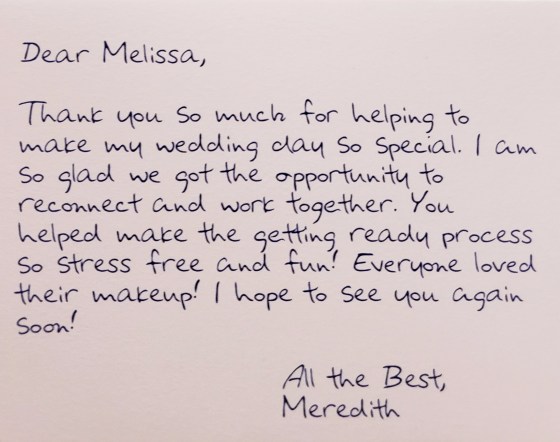 Dear Melissa,
Thank you so much for helping to
make my wedding day so special. I am
so glad we got the opportunity to
reconnect and work together. You
helped make the getting ready process
so stress free and fun! Everyone loved
their makeup! I hope to see you again
soon!
All the Best,
Meredith